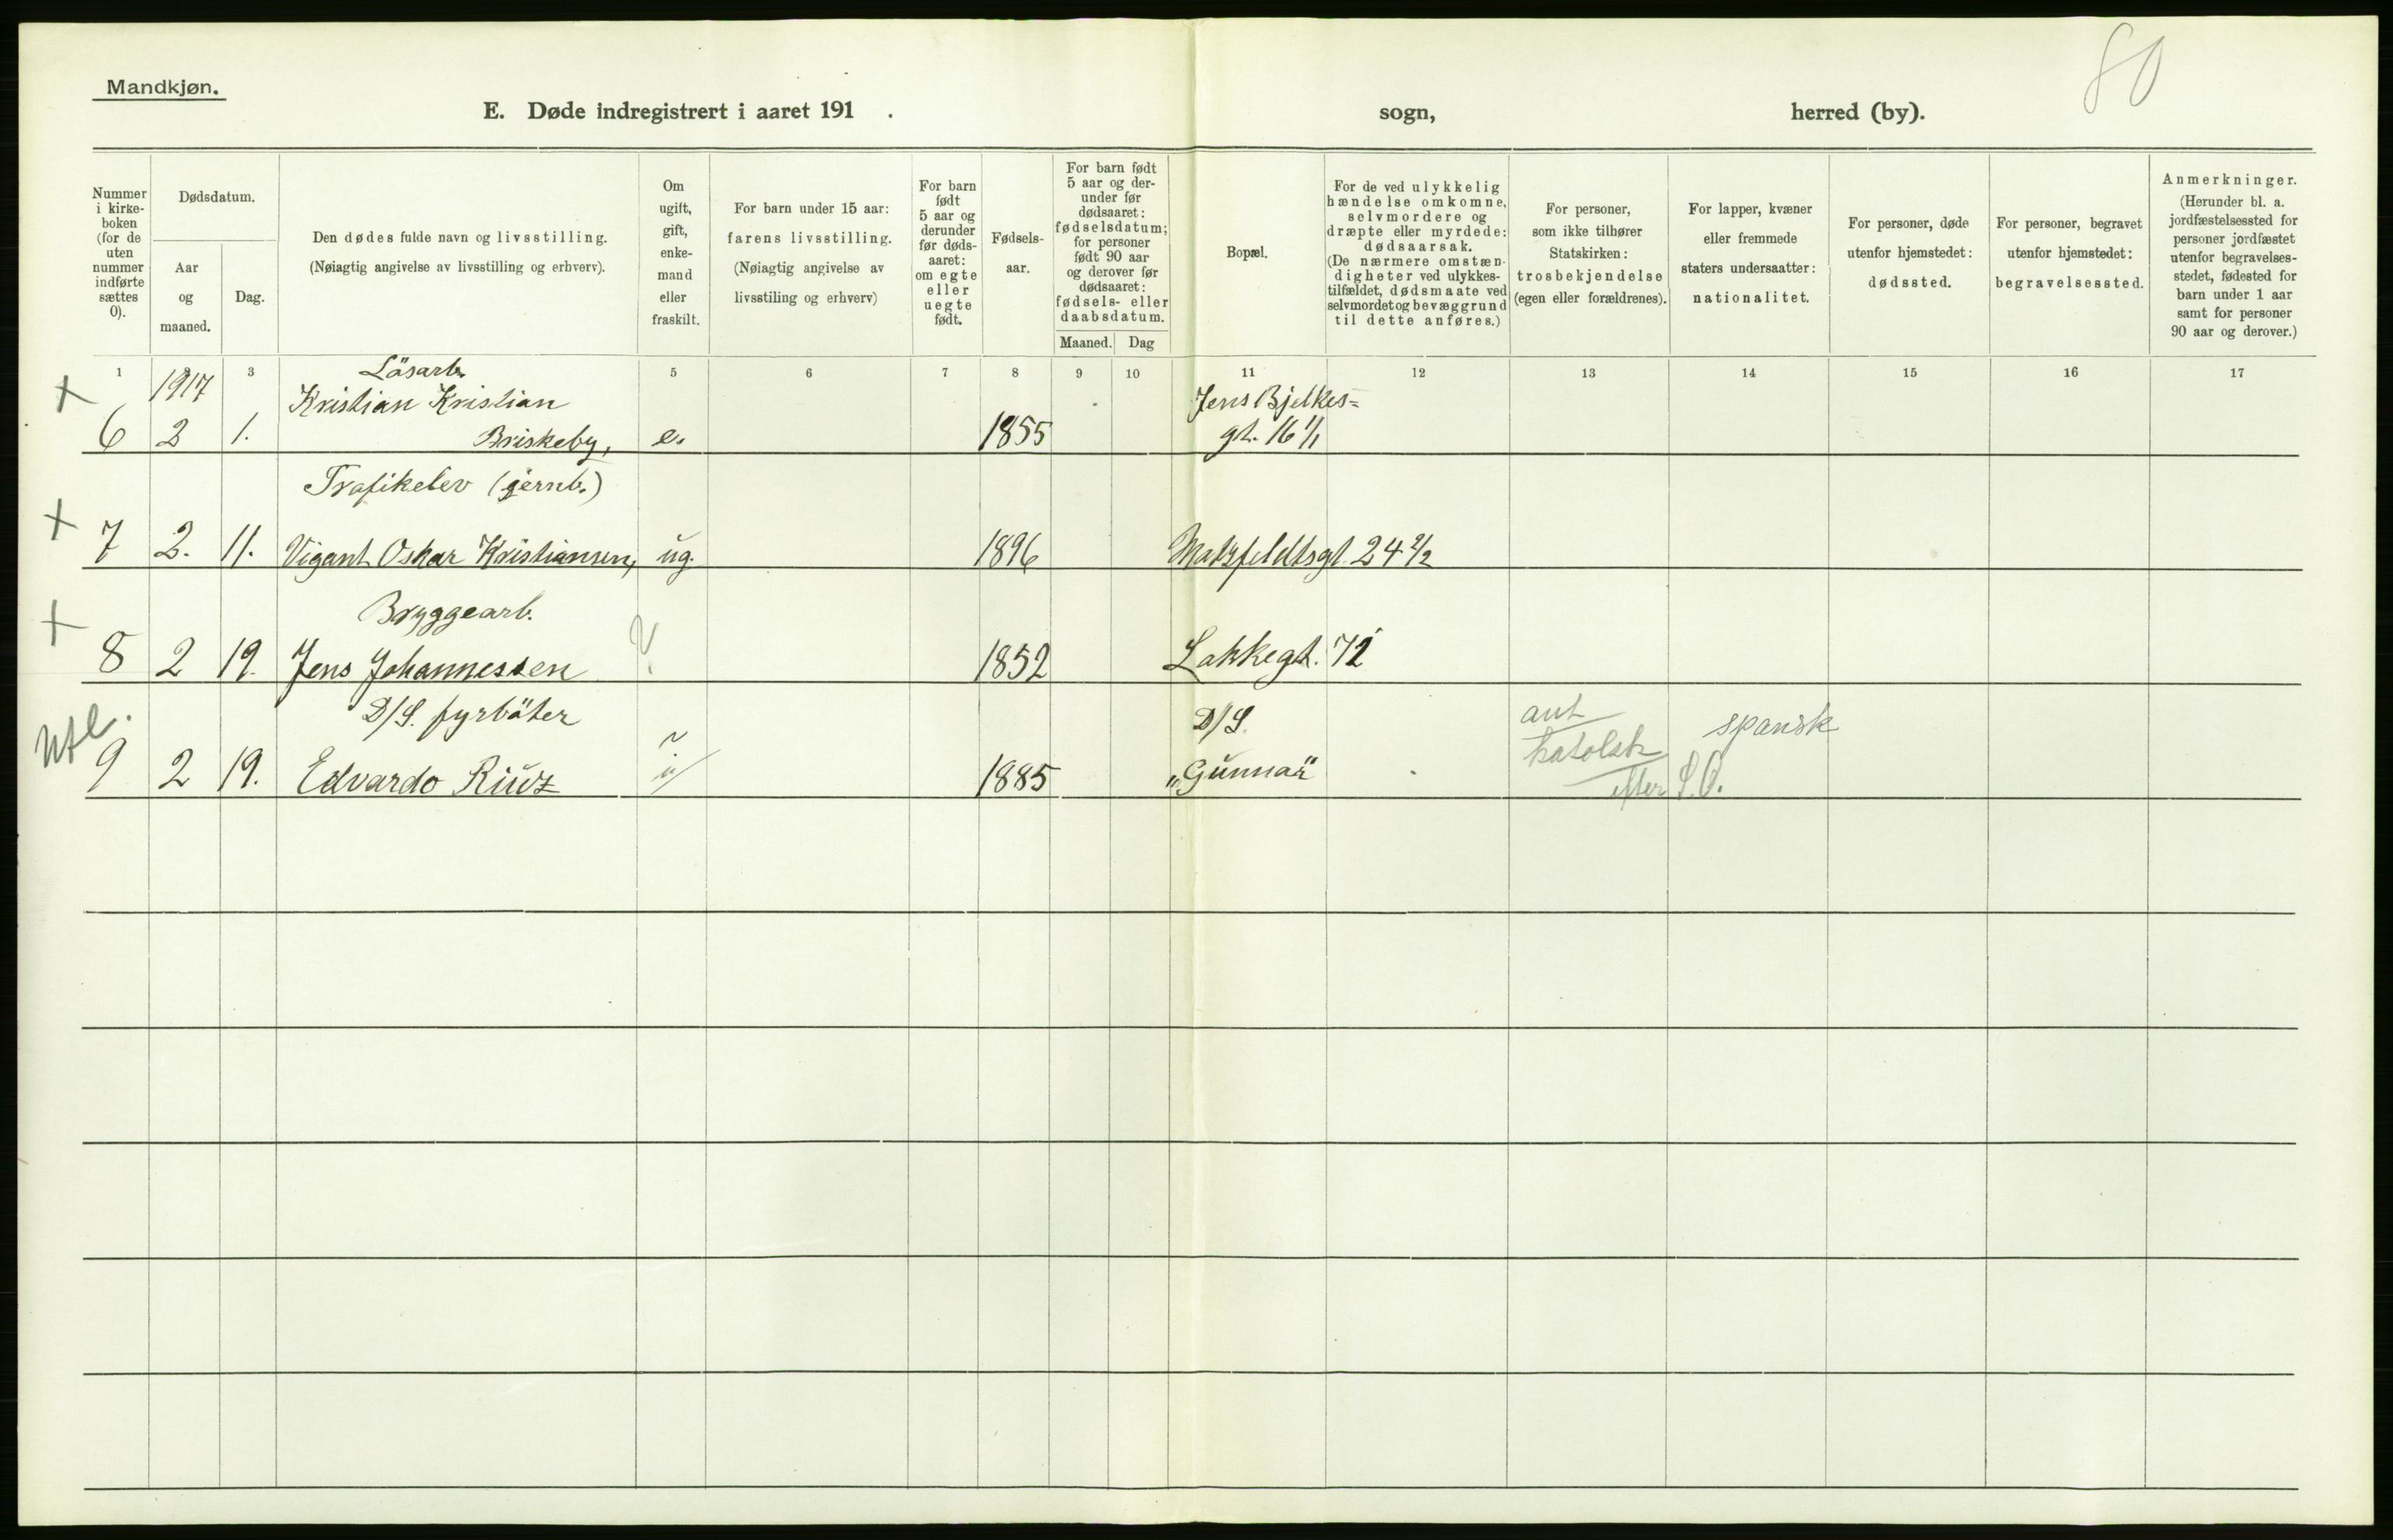 80
Mandkjøn.
E. Døde indregistrert i aaret 191 . sogn, herred (by).
Nummer i kirke-boken (for de uten nummer indførte sættes 0).
Dødsdatum.
Aar og maaned.
Dag.
Den dødes fulde navn og livsstilling.
(Nøiagtig angivelse av livsstilling og erhverv).
Om ugift, gift, enke-mand eller fraskilt.
For barn under 15 aar:
farens livsstilling.
(Nøiagtig angivelse av
livsstiling og erhverv)
For barn født 5 aar og derunder før døds-aaret: om egte eller uegte født.
Fødsels-aar.
For barn født 5 aar og der-under før dødsaaret: fødselsdatum; for personer født 90 aar og derover før dødsaaret: fødsels- eller daabsdatum.
Maaned. Dag
Bopæl.
For de ved ulykkelig
hændelse omkomne,
selvmordere og
dræpte eller myrdede:
dødsaarsak.
(De nærmere omstæn-
digheter ved ulykkes-
tilfældet, dødsmaate ved
selvmordet og bevæggrund
til dette anføres.)
For personer,
som ikke tilhører
Statskirken:
trosbekjendelse
(egen eller forældrenes).
For lapper, kvæner
eller fremmede
staters undersaatter:
nationalitet.
For personer, døde
utenfor hjemstedet:
dødssted.
For personer, begravet
utenfor hjemstedet:
begravelsessted.
Anmerkninger.
(Herunder bl. a.
jordfæstelsessted for
personer jordfæstet
utenfor begravelses-
stedet, fødested for
barn under 1 aar
samt for personer
90 aar og derover.)
1 3 5 6 7 8 9 10 11 12 13 14 15 16 17
1917 Lösarb.
+ Kristian Kristian Jens Bjelkes=
6 2 1. Briskeby, e. 1855 gt. 16 1/1
Trafikelev (jernb.)
+ 7 2. 11. Vigant Oskar Kristiansen, ug. 1896 Matzfeldtsgt. 24 2/2
+ Bryggearb.
8 2 19. Jens Johannessen ? 1852 Lakkegt. 72
Utl. D/S. fyrböter D/S. ant katolsk spansk
9 2 19. Edvardo Riuz ? 1885 „Gunnar" efter S.O.